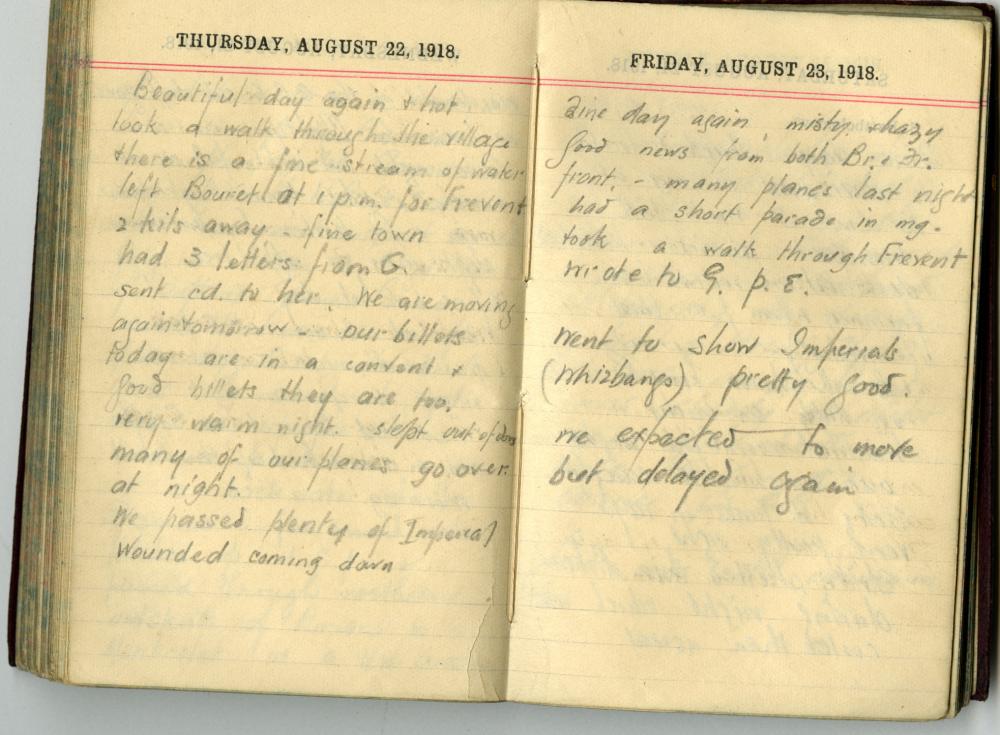 THURSDAY, AUGUST 22, 1918.
Beautiful day again & hot
took a walk through the village
there is a fine stream of water
left Bouret at 1 p.m. for Frevent
2 kils away - fine town
had 3 letters from G.
sent cd. to her. We are moving
again tomorrow - our billets
today are in a convent &
good billets they are too.
very warm night. slept out of doors
many of our planes go over
at night.
We passed plenty of Imperial
Wounded coming down
FRIDAY, AUGUST 23, 1918.
Fine day again, misty & hazy
Good news from both Br. & Fr.
front. - many planes last night
had a short parade in mg.
took a walk through Frevent
Wrote to G. P. E.
Went to show Imperials
(Whizbangs) pretty good.
we expected to move
but delayed again